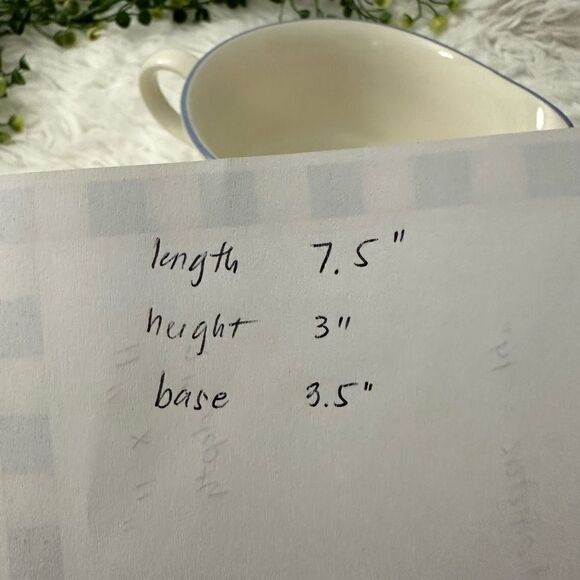 length 7.5"
height 3"
base 3.5"